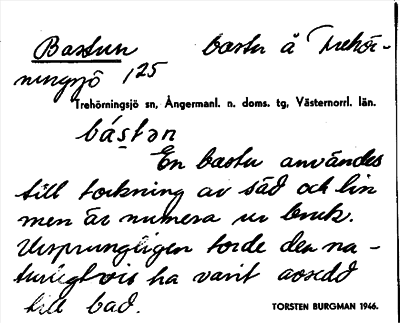 Bastun bastu å Trehör-
ningsjö 125
Trehörningsjö sn, Ångermanl. n. doms. tg, Västernorrl. län.
bástən
En bastu användes
till torkning av säd och lin
men är numera ur bruk.
Ursprungligen torde den na-
turligtvis ha varit avsedd
till bad.
TORSTEN BURGMAN 1946.